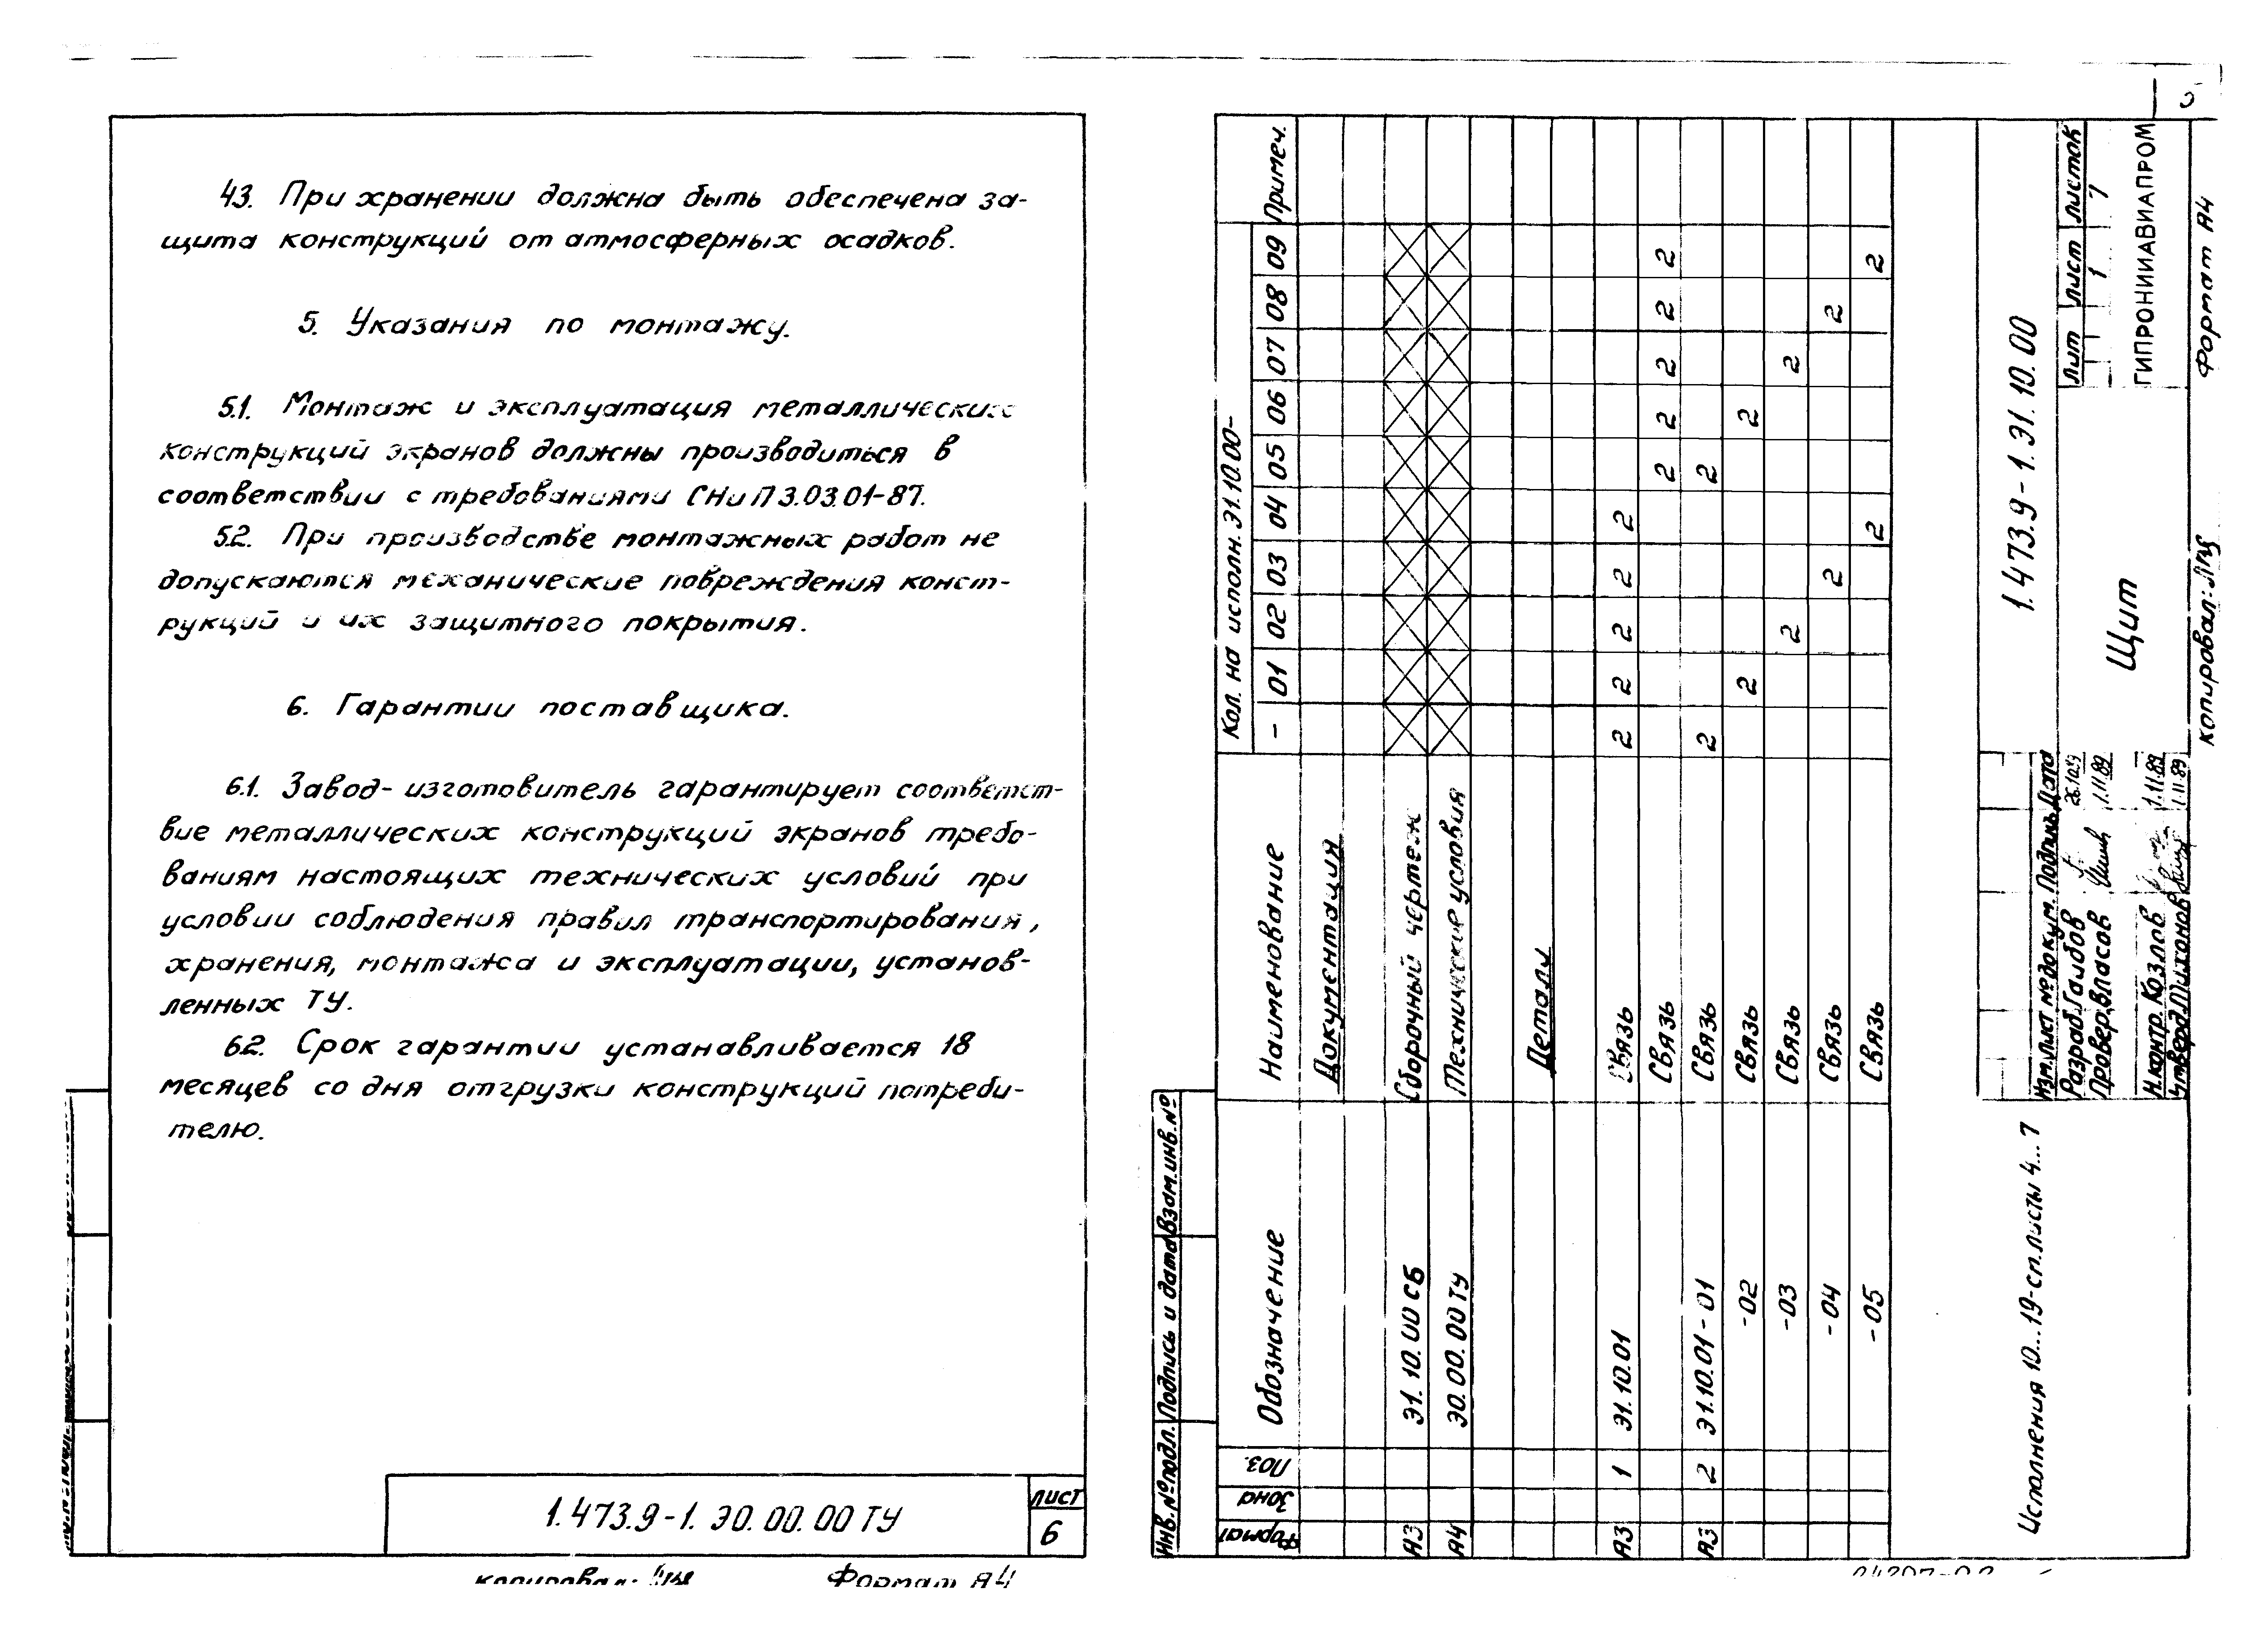 5
4.3. При хранении должна быть обеспечена за-
щита конструкций от атмосферных осадков.
5. Указания по монтажу.
5.1. Монтаж и эксплуатация металлических
конструкций экранов должны производиться в
соответствии с требованиями СНиП 3.03.01-87.
5.2. При производстве монтажных работ не
допускаются механические повреждения конст-
рукций и их защитного покрытия.
6. Гарантии поставщика.
6.1. Завод-изготовитель гарантирует соответст-
вие металлических конструкций экранов требо-
ваниям настоящих технических условий при
условии соблюдения правил транспортирования,
хранения, монтажа и эксплуатации, установ-
ленных ТУ.
6.2. Срок гарантии устанавливается 18
месяцев со дня отгрузки конструкций потреби-
телю.
1.473.9-1. Э0.00.00 ТУ
лист
6
копировал:
Формат А4
Формат Зона Поз. Обозначение Наименование Кол. на исполн. Э1.10.00- Примеч.
- 01 02 03 04 05 06 07 08 09
Документация
А3 Э1.10.00 СБ Сборочный чертеж
А4 Э0.00.00 ТУ Технические условия
Детали
А3 1 Э1.10.01 Связь 2 2 2 2 2
Связь 2 2 2 2 2
А3 2 Э1.10.01-01 Связь 2 2
-02 Связь 2 2
-03 Связь 2 2
-04 Связь 2 2
-05 Связь 2 2
Исполнения 10...19-сп.листы 4...7
1.473.9-1.Э1.10.00
Изм. Лист № докум. Подпись Дата
Разраб. Гаибов 26.10.89
Провер. Власов 1.11.89
Н.контр. Козлов 1.11.89
Утверд. Тихонов 1.11.89
Щит
Лит Лист Листов
1 7
ГИПРОНИИАВИАПРОМ
Инв.№ подл. Подпись и дата Взам.инв.№
копировал:
Формат А4